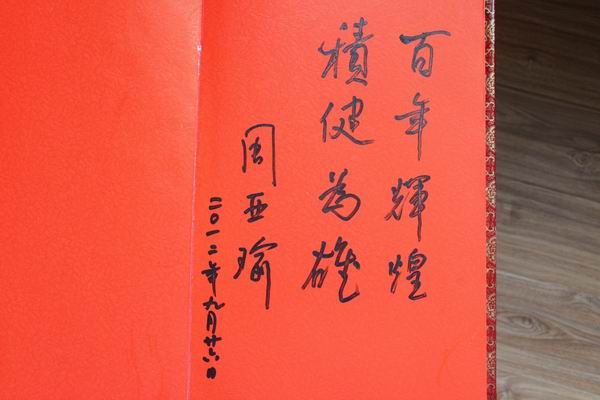 百年輝煌
積健為雄
周亚瑜
二〇一二年九月廿六日